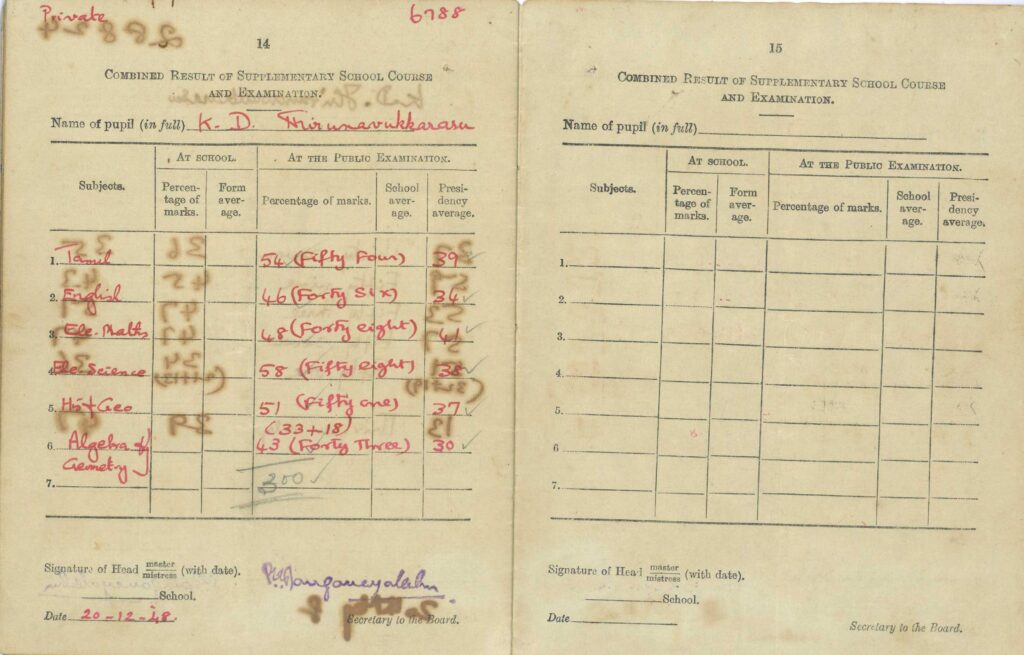 Private
6788
14
COMBINED RESULT OF SUPPLEMENTARY SCHOOL COURSE
AND EXAMINATION.
Name of pupil (in full) K. D. Thirunavukkarasu
Subjects. AT SCHOOL. AT THE PUBLIC EXAMINATION.
Percentage of marks. Form average. Percentage of marks. School average. Presidency average.
1. Tamil 54 (Fifty Four) 39
2. English 46 (Forty Six) 34
3. Ele. Maths 48 (Forty eight) 41
4. Ele. Science 58 (Fifty eight) 38
5. His + Geo 51 (Fifty one) 37
(33+18)
6. Algebra & Gemetry 43 (Forty Three) 30
7. 300
Signature of Head master/mistress (with date).
School.
Date 20-12-48.
Secretary to the Board.
15
COMBINED RESULT OF SUPPLEMENTARY SCHOOL COURSE
AND EXAMINATION.
Name of pupil (in full)
Subjects. AT SCHOOL. AT THE PUBLIC EXAMINATION.
Percentage of marks. Form average. Percentage of marks. School average. Presidency average.
1.
2.
3.
4.
5.
6.
7.
Signature of Head master/mistress (with date).
School.
Date
Secretary to the Board.